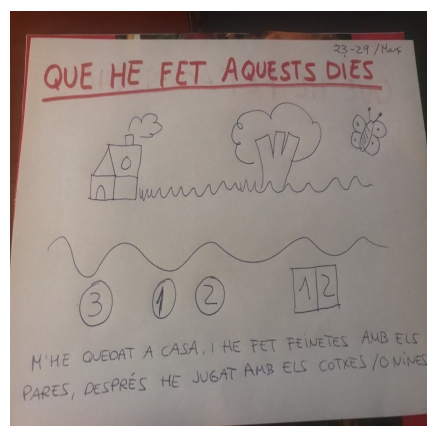 23-29/Març
QUE HE FET AQUESTS DIES
3 1 2 12
M'HE QUEDAT A CASA, I HE FET FEINETES AMB ELS
PARES, DESPRÉS HE JUGAT AMB ELS COTXES/O NINES